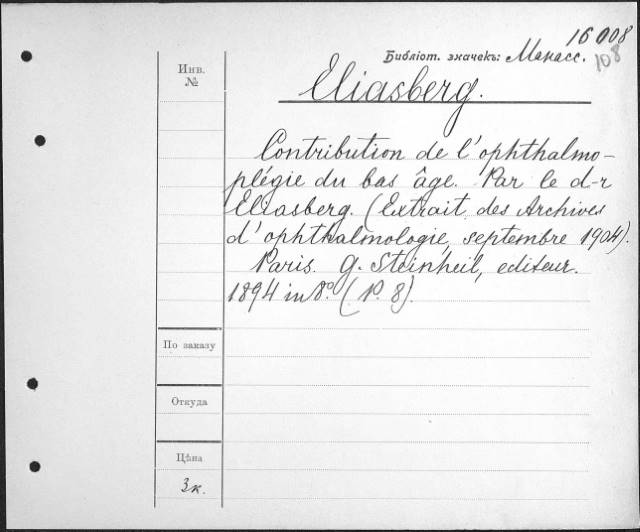 16 008
Библіот. значекъ: Манасс.
108
Инв.
№
Eliasberg.
Contribution de l'ophthalmo-
plégie du bas âge. Par le d-r
Eliasberg. (Extrait des Archives
d'ophthalmologie, septembre 1904).
Paris. G. Steinheil, editeur.
1894 in 8º. (P. 8).
По заказу
Откуда
Цѣна
3к.